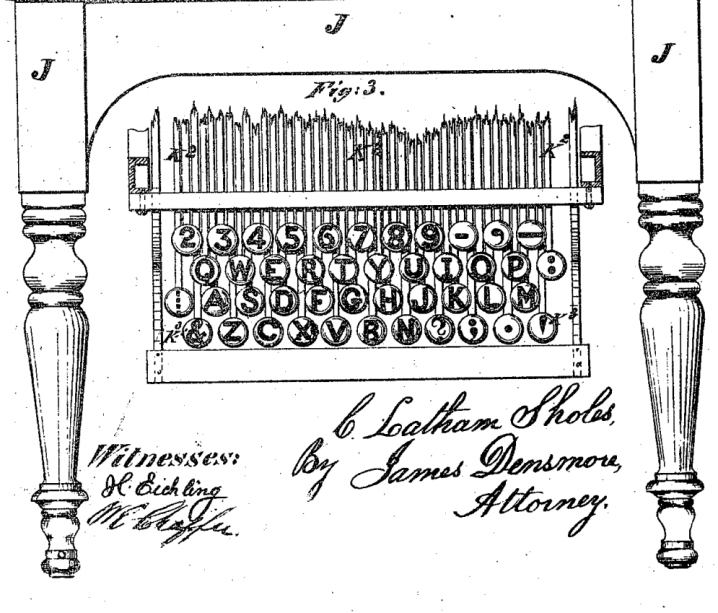 J
J J
Fig: 3.
K² K² K²
2 3 4 5 6 7 8 9 - , —
Q W E R T Y U I O P :
⁝ A S D F G H J K L M
K³ & Z C X V B N ? ; . ' K³
C. Latham Sholes,
By James Densmore,
Attorney.
Witnesses:
H. Eichling